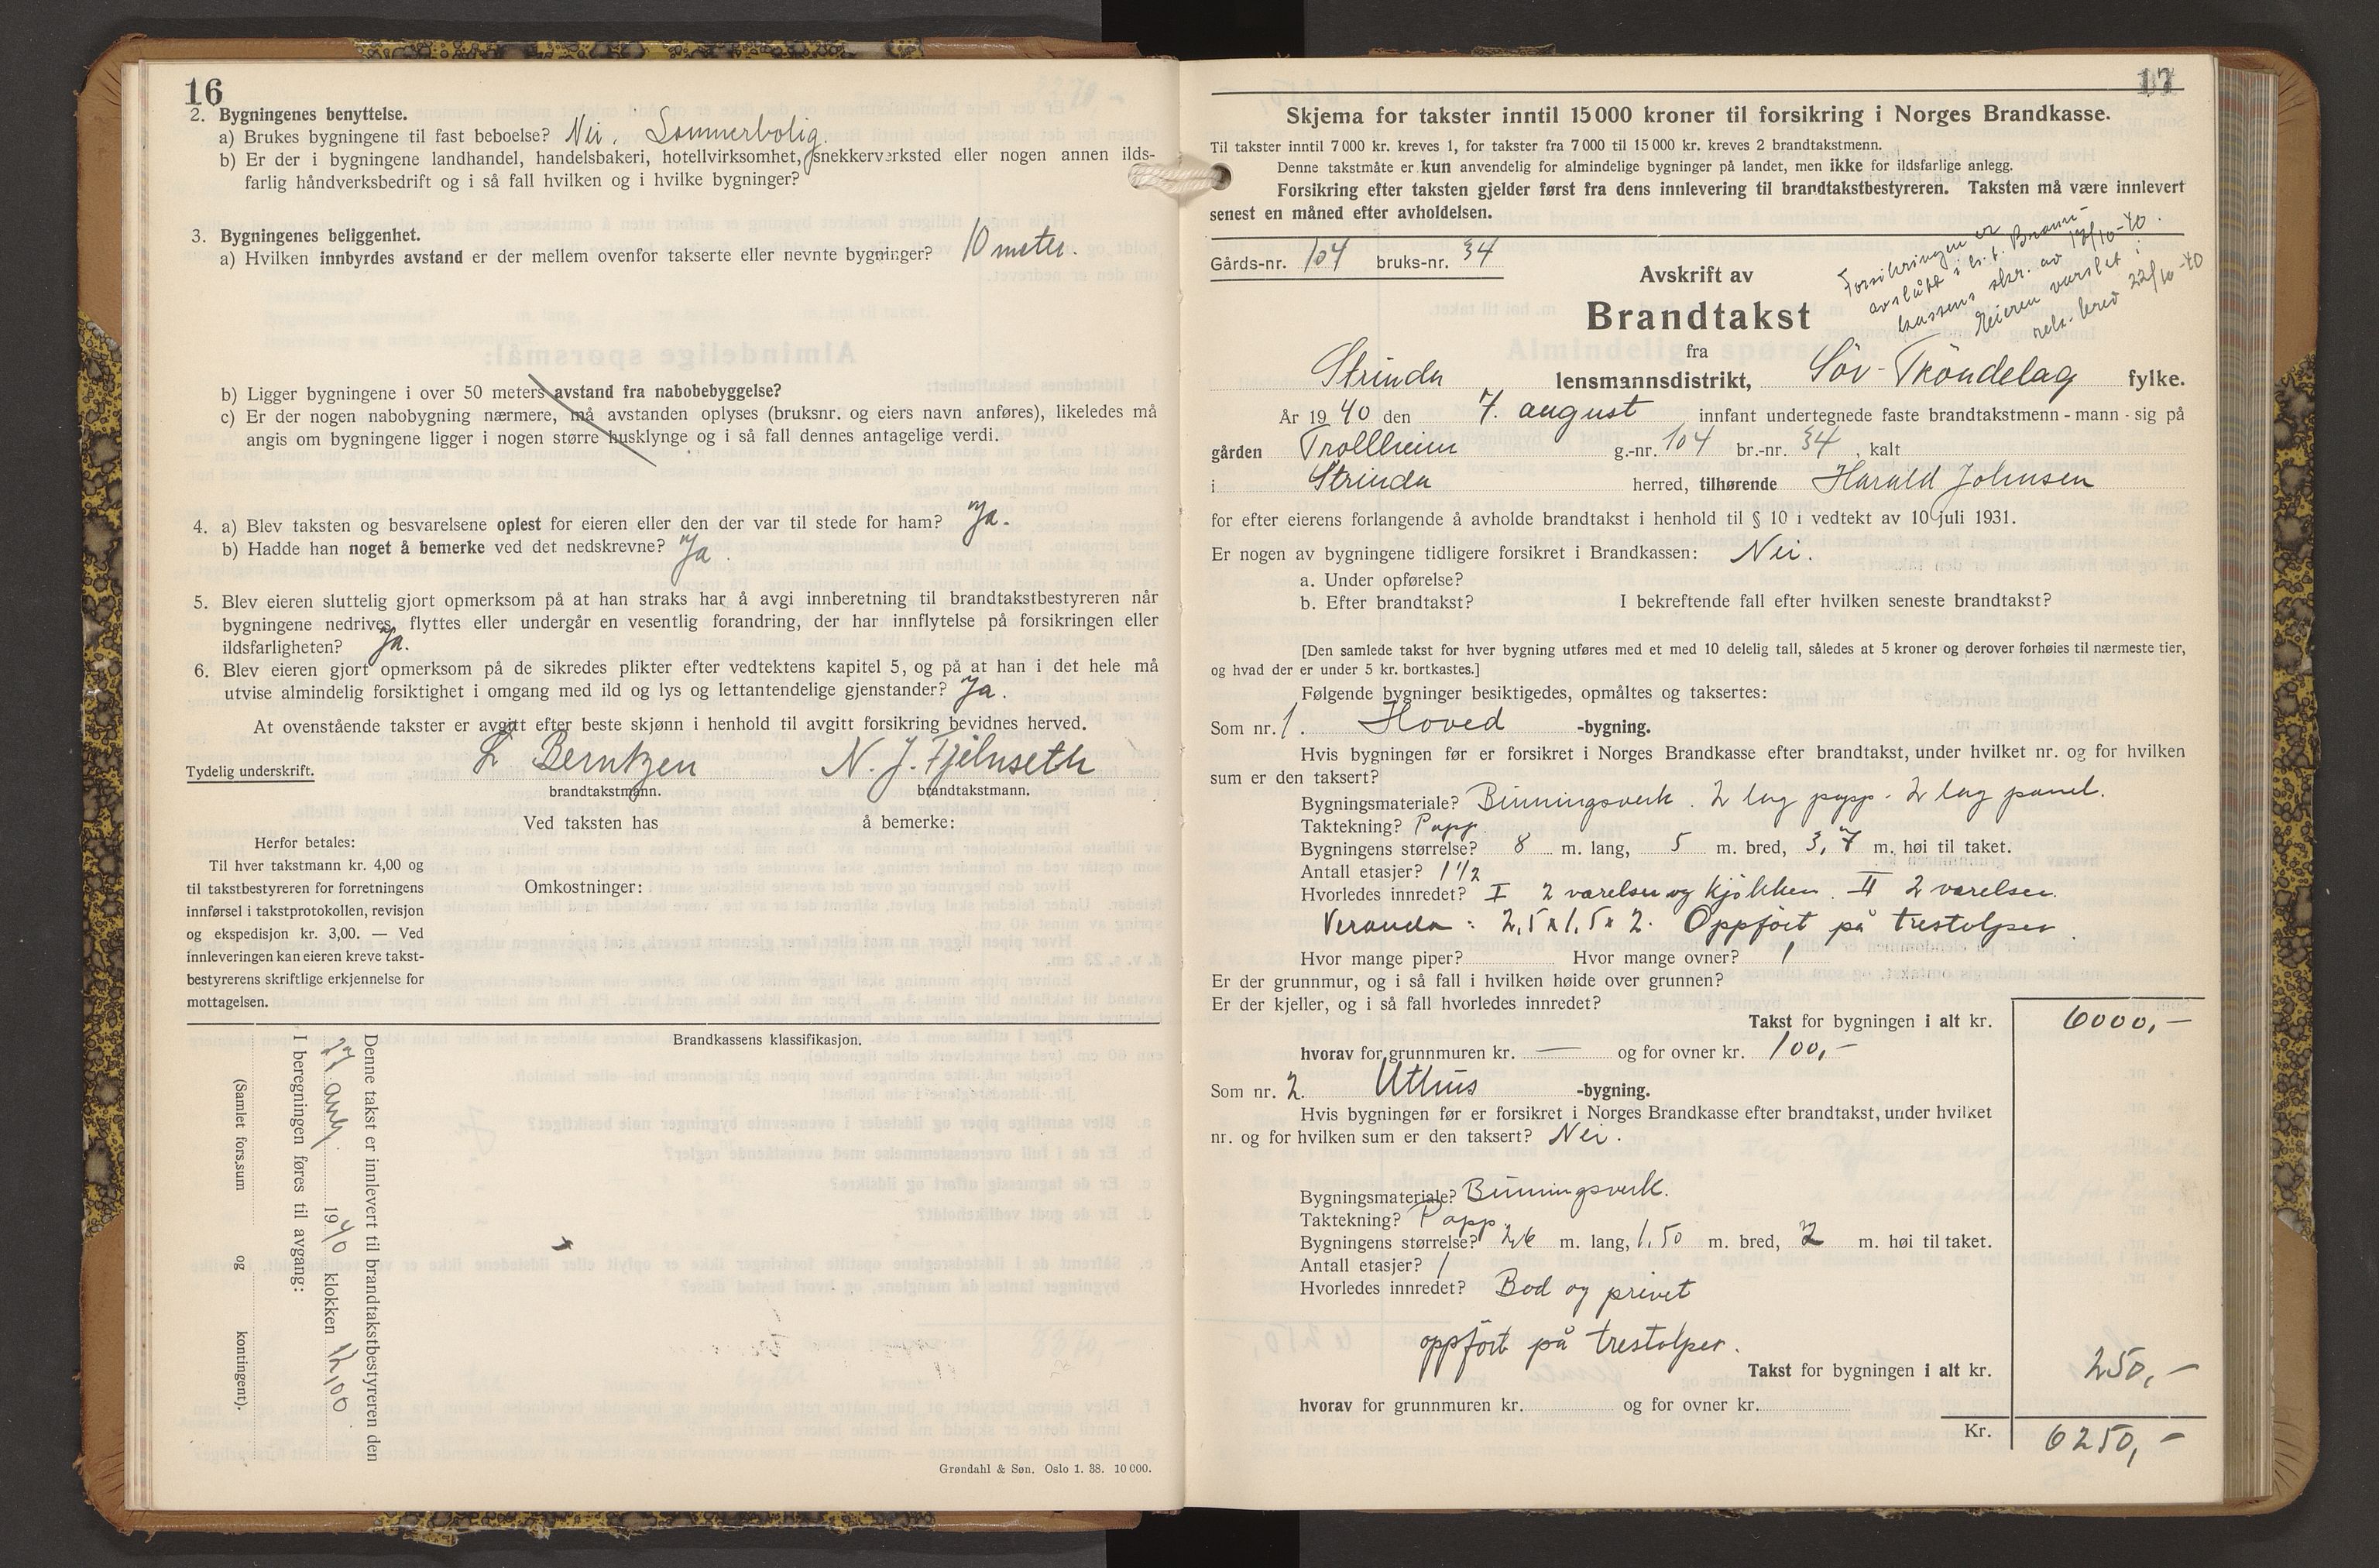 16
2. Bygningenes benyttelse.
a) Brukes bygningene til fast beboelse? Nei. Sommerbolig.
b) Er der i bygningene landhandel, handelsbakeri, hotellvirksomhet, snekkerverksted eller nogen annen ilds-
farlig håndverksbedrift og i så fall hvilken og i hvilke bygninger?
3. Bygningenes beliggenhet.
a) Hvilken innbyrdes avstand er der mellem ovenfor takserte eller nevnte bygninger? 10 meter.
b) Ligger bygningene i over 50 meters avstand fra nabobebyggelse?
c) Er der nogen nabobygning nærmere, må avstanden oplyses (bruksnr. og eiers navn anføres), likeledes må
angis om bygningene ligger i nogen større husklynge og i så fall dennes antagelige verdi.
4. a) Blev taksten og besvarelsene oplest for eieren eller den der var til stede for ham? Ja.
b) Hadde han noget å bemerke ved det nedskrevne? Ja.
5. Blev eieren sluttelig gjort opmerksom på at han straks har å avgi innberetning til brandtakstbestyreren når
bygningene nedrives, flyttes eller undergår en vesentlig forandring, der har innflytelse på forsikringen eller
ildsfarligheten? Ja.
6. Blev eieren gjort opmerksom på de sikredes plikter efter vedtektens kapitel 5, og på at han i det hele må
utvise almindelig forsiktighet i omgang med ild og lys og lettantendelige gjenstander? Ja.
At ovenstående takster er avgitt efter beste skjønn i henhold til avgitt forsikring bevidnes herved.
Tydelig underskrift. L Berntzen N. J. Fjelnseth
brandtakstmann. brandtakstmann.
Ved taksten has å bemerke:
Herfor betales:
Til hver takstmann kr. 4,00 og
til takstbestyreren for forretningens
innførsel i takstprotokollen, revisjon
og ekspedisjon kr. 3,00. — Ved
innleveringen kan eieren kreve takst-
bestyrerens skriftlige erkjennelse for
mottagelsen.
Omkostninger:
Brandkassens klassifikasjon.
Denne takst er innlevert til brandtakstbestyreren den
27. aug. 1940 klokken 12,00
I beregningen føres til avgang:
(Samlet fors.sum og kontingent).
Grøndahl & Søn. Oslo 1. 38. 10 000.
17
Skjema for takster inntil 15 000 kroner til forsikring i Norges Brandkasse.
Til takster inntil 7 000 kr. kreves 1, for takster fra 7 000 til 15 000 kr. kreves 2 brandtakstmenn.
Denne takstmåte er kun anvendelig for almindelige bygninger på landet, men ikke for ildsfarlige anlegg.
Forsikring efter taksten gjelder først fra dens innlevering til brandtakstbestyreren. Taksten må være innlevert
senest en måned efter avholdelsen.
Gårds-nr. 104 bruks-nr. 34
Forsikringen er
avslått i h.t. Brann-
kassens skr. av 12/10-40.
Eieren varslet i
rek. brev 22/10-40
Avskrift av
Brandtakst
fra
Strinda lensmannsdistrikt, Sör-Tröndelag fylke.
År 1940 den 7. august innfant undertegnede faste brandtakstmenn - mann - sig på
gården Trollheim g.-nr. 104 br.-nr. 34, kalt
i Strinda herred, tilhørende Harald Johnsen
for efter eierens forlangende å avholde brandtakst i henhold til § 10 i vedtekt av 10 juli 1931.
Er nogen av bygningene tidligere forsikret i Brandkassen: Nei.
a. Under opførelse?
b. Efter brandtakst? I bekreftende fall efter hvilken seneste brandtakst?
[Den samlede takst for hver bygning utføres med et med 10 delelig tall, således at 5 kroner og derover forhøies til nærmeste tier,
og hvad der er under 5 kr. bortkastes.]
Følgende bygninger besiktigedes, opmåltes og taksertes:
Som nr. 1. Hoved -bygning.
Hvis bygningen før er forsikret i Norges Brandkasse efter brandtakst, under hvilket nr. og for hvilken
sum er den taksert?
Bygningsmateriale? Binningsverk. 2 lag papp. 2 lag panel.
Taktekning? Papp.
Bygningens størrelse? 8 m. lang, 5 m. bred, 3,7 m. høi til taket.
Antall etasjer? 1 1/2
Hvorledes innredet? I 2 værelser og kjökken. II 2 værelser.
Veranda: 2,5 x 1,5 x 2. Oppfört på trestolper.
Hvor mange piper? Hvor mange ovner? 1
Er der grunnmur, og i så fall i hvilken høide over grunnen?
Er der kjeller, og i så fall hvorledes innredet?
Takst for bygningen i alt kr. 6000,-
hvorav for grunnmuren kr. — og for ovner kr. 100,-
Som nr. 2. Uthus -bygning.
Hvis bygningen før er forsikret i Norges Brandkasse efter brandtakst, under hvilket
nr. og for hvilken sum er den taksert? Nei.
Bygningsmateriale? Binningsverk.
Taktekning? Papp.
Bygningens størrelse? 2,6 m. lang, 1,50 m. bred, 2 m. høi til taket.
Antall etasjer? 1
Hvorledes innredet? Bod og privet
oppfört på trestolper.
Takst for bygningen i alt kr. 250,-
hvorav for grunnmuren kr. og for ovner kr.
Kr. 6250,-